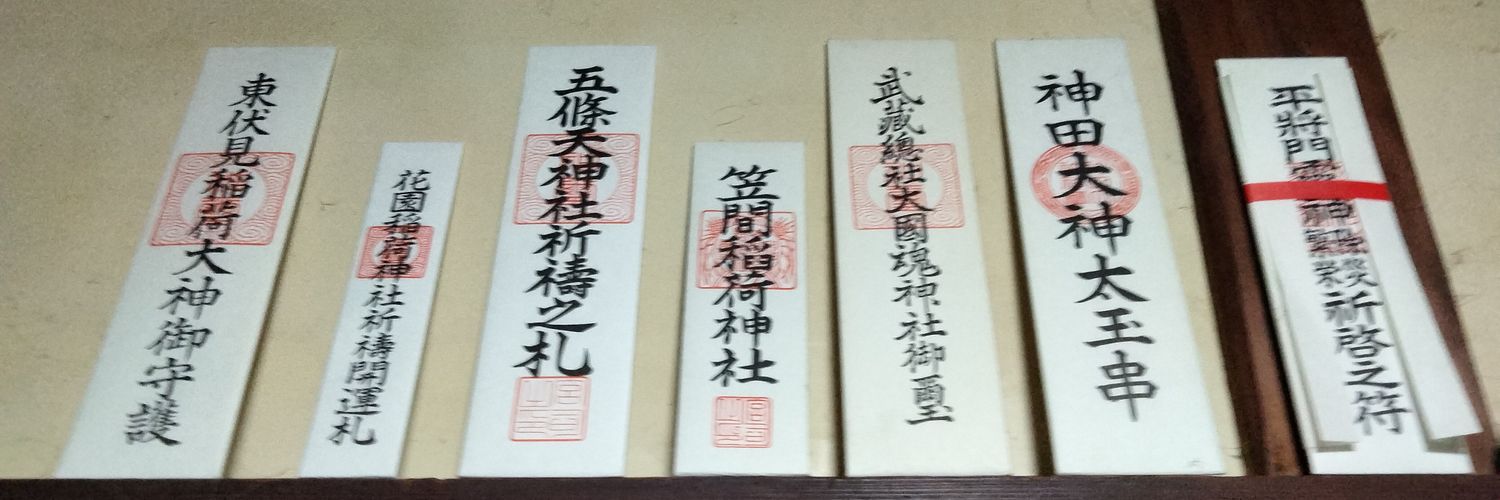 東伏見稲荷大神御守護
花園稲荷神社祈禱開運札
五條天神社祈禱之札
宮司之印
笠間稲荷神社
宮司之印
武藏總社大國魂神社御璽
神田大神太玉串
平將門
祈啓之符